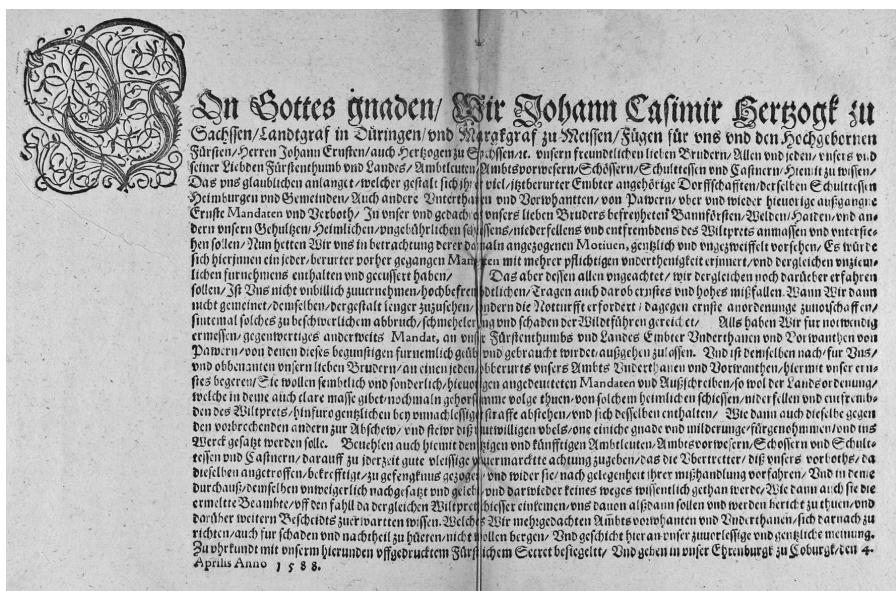 Von Gottes gnaden/ Wir Johann Casimir Hertzogk zu
Sachssen/Landtgraf in Düringen/vnd Marggraf zu Meissen/Fügen für vns vnd den Hochgebornen
Fürsten/Herren Johann Ernsten/auch Hertzogen zu Sachssen/ꝛc. vnsern freundtlichen lieben Brudern/Allen vnd jeden/vnsers vnd
seiner Liebden Fürstenthumb vnd Landes/Ambtleuten/Ambtsvorwesern/Schössern/Schulttessen vnd Castnern/Hiemit zu wissen/
Das vns glaublichen anlanget/welcher gestalt sich ihrer viel/itztberurter Embter angehörige Dorffschafften/derselben Schulttessen
Heimburgen vnd Gemeinden/Auch andere Vnterthanen vnd Vorwhantten/von Pawern/vber vnd wieder hieuorige außgangne
Ernste Mandaten vnd Verboth/ In vnser vnd gedachts vnsers lieben Bruders befreyheten Bannförsten/Welden/Haiden/vnd an-
dern vnsern Gehultzen/Heimlichen/vngebührlichen schiessens/niederfellens vnd entfrembdens des Wiltprets anmassen vnd vnterste-
hen sollen/Nun hetten Wir vns in betrachtung derer damaln angezogenen Motiuen/gentzlich vnd vngezweiffelt vorsehen/Es würde
sich hierinnen ein jeder/berurter vorher gegangen Mandaten mit mehrer pflichtigen vnderthenigkeit erinnert/vnd dergleichen vnziem-
lichen furnehmens enthalten vnd geeussert haben/ Das aber dessen allen vngeachtet/wir dergleichen noch darüeber erfahren
sollen/Ist Vns nicht vnbillich zuuernehmen/hochbefrembdtlichen/Tragen auch darob ernstes vnd hohes mißfallen. Wann Wir dann
nicht gemeinet/demselben/dergestalt lenger zuzusehen/sondern die Notturfft erfordert/dagegen ernste anordenunge zuuorschaffen/
sintemal solches zu beschwerlichem abbruch/schmehelerung vnd schaden der Wildtführen gereichet/ Alls haben Wir fur notwendig
ermessen/gegenwertiges anderweits Mandat, an vnser Fürstenthumbs vnd Landes Embter Vnderthanen vnd Vorwanthen von
Pawern/von denen dieses begunstigen furnemlich geübt vnd gebraucht wirdet/außgehen zulassen. Vnd ist demselben nach/fur Vns/
vnd obbenanten vnsern lieben Brudern/an einen jeden/obberurts vnsers Ambts Vnderthanen vnd Vorwanthen/hiermit vnser ern-
stes begeren/Sie wollen sembtlich vnd sonderlich/hieuorigen angedeuteten Mandaten vnd Außschreiben/so wol der Landsordenung/
welche in deme auch clare masse gibet/nochmaln gehorsamme volge thuen/von solchem heimlichen schiessen/niderfellen vnd entfremb-
den des Wiltprets/hinfuro gentzlichen bey vnnachlessiger straffe abstehen/vnd sich desselben enthalten/ Wie dann auch dieselbe gegen
den vorbrechenden andern zur Abschew/vnd stewr diß mutwilligen vbels/one einiche gnad vnd milderunge/fürgenohmmen/vnd ins
Werck gesatzt werden solle. Beuehlen auch hiemit den itzigen vnd künfftigen Ambtleuten/Ambtsvorwesern/Schossern vnd Schult-
tessen vnd Castnern/darauff zu jederzeit gute vleissige vffmerckhte achtung zugeben/das die Vbertretter/diß vnsers vorboths/da
dieselben angetroffen/bekrefftigt/zu gefengknus gezogen/vnd wider sie/nach gelegenheit ihrer mißhandlung vorfahren/ Vnd in deme
durchauß/demselben vnweigerlich nachgesatzt vnd gelebt/vnd darwieder keines weges wissentlich gethan werde/Wie dann auch sie die
ermeltte Beambte/vff den fahll da dergleichen Wiltpretschiesser einkemen/vns dauon alßdann sollen vnd werden bericht zu thuen/vnd
darüher weitern Bescheidts zuerwartten wissen. Welches Wir mehrgedachten Ambts vorwhanten vnd Vnderthanen/sich darnach zu
richten/auch fur schaden vnd nachtheil zu hüeten/nicht wollen bergen/ Vnd geschicht hieran vnser zuuerlessige vnd gentzliche meinung.
Zu vhrkundt mit vnserm hierunden vffgedrucktem Fürstlichem Secret besiegeltt/ Vnd geben in vnser Ehrenburgk zu Coburgk/den 4.
Aprilis Anno 1588.